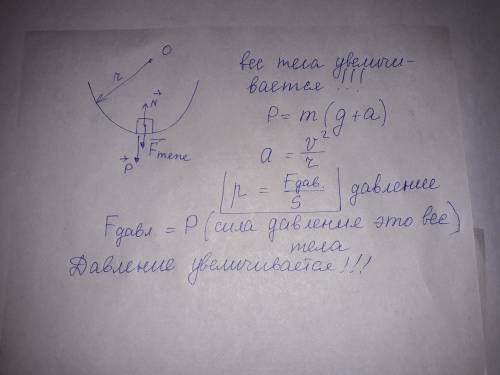 O
r
N
Fтяж
P
вес тела увеличи-
вается !!!
P = m (g+a)
a = v²/r
p = Fдав./S давление
Fдавл. = P (сила давления это вес)
тела
Давление увеличивается!!!